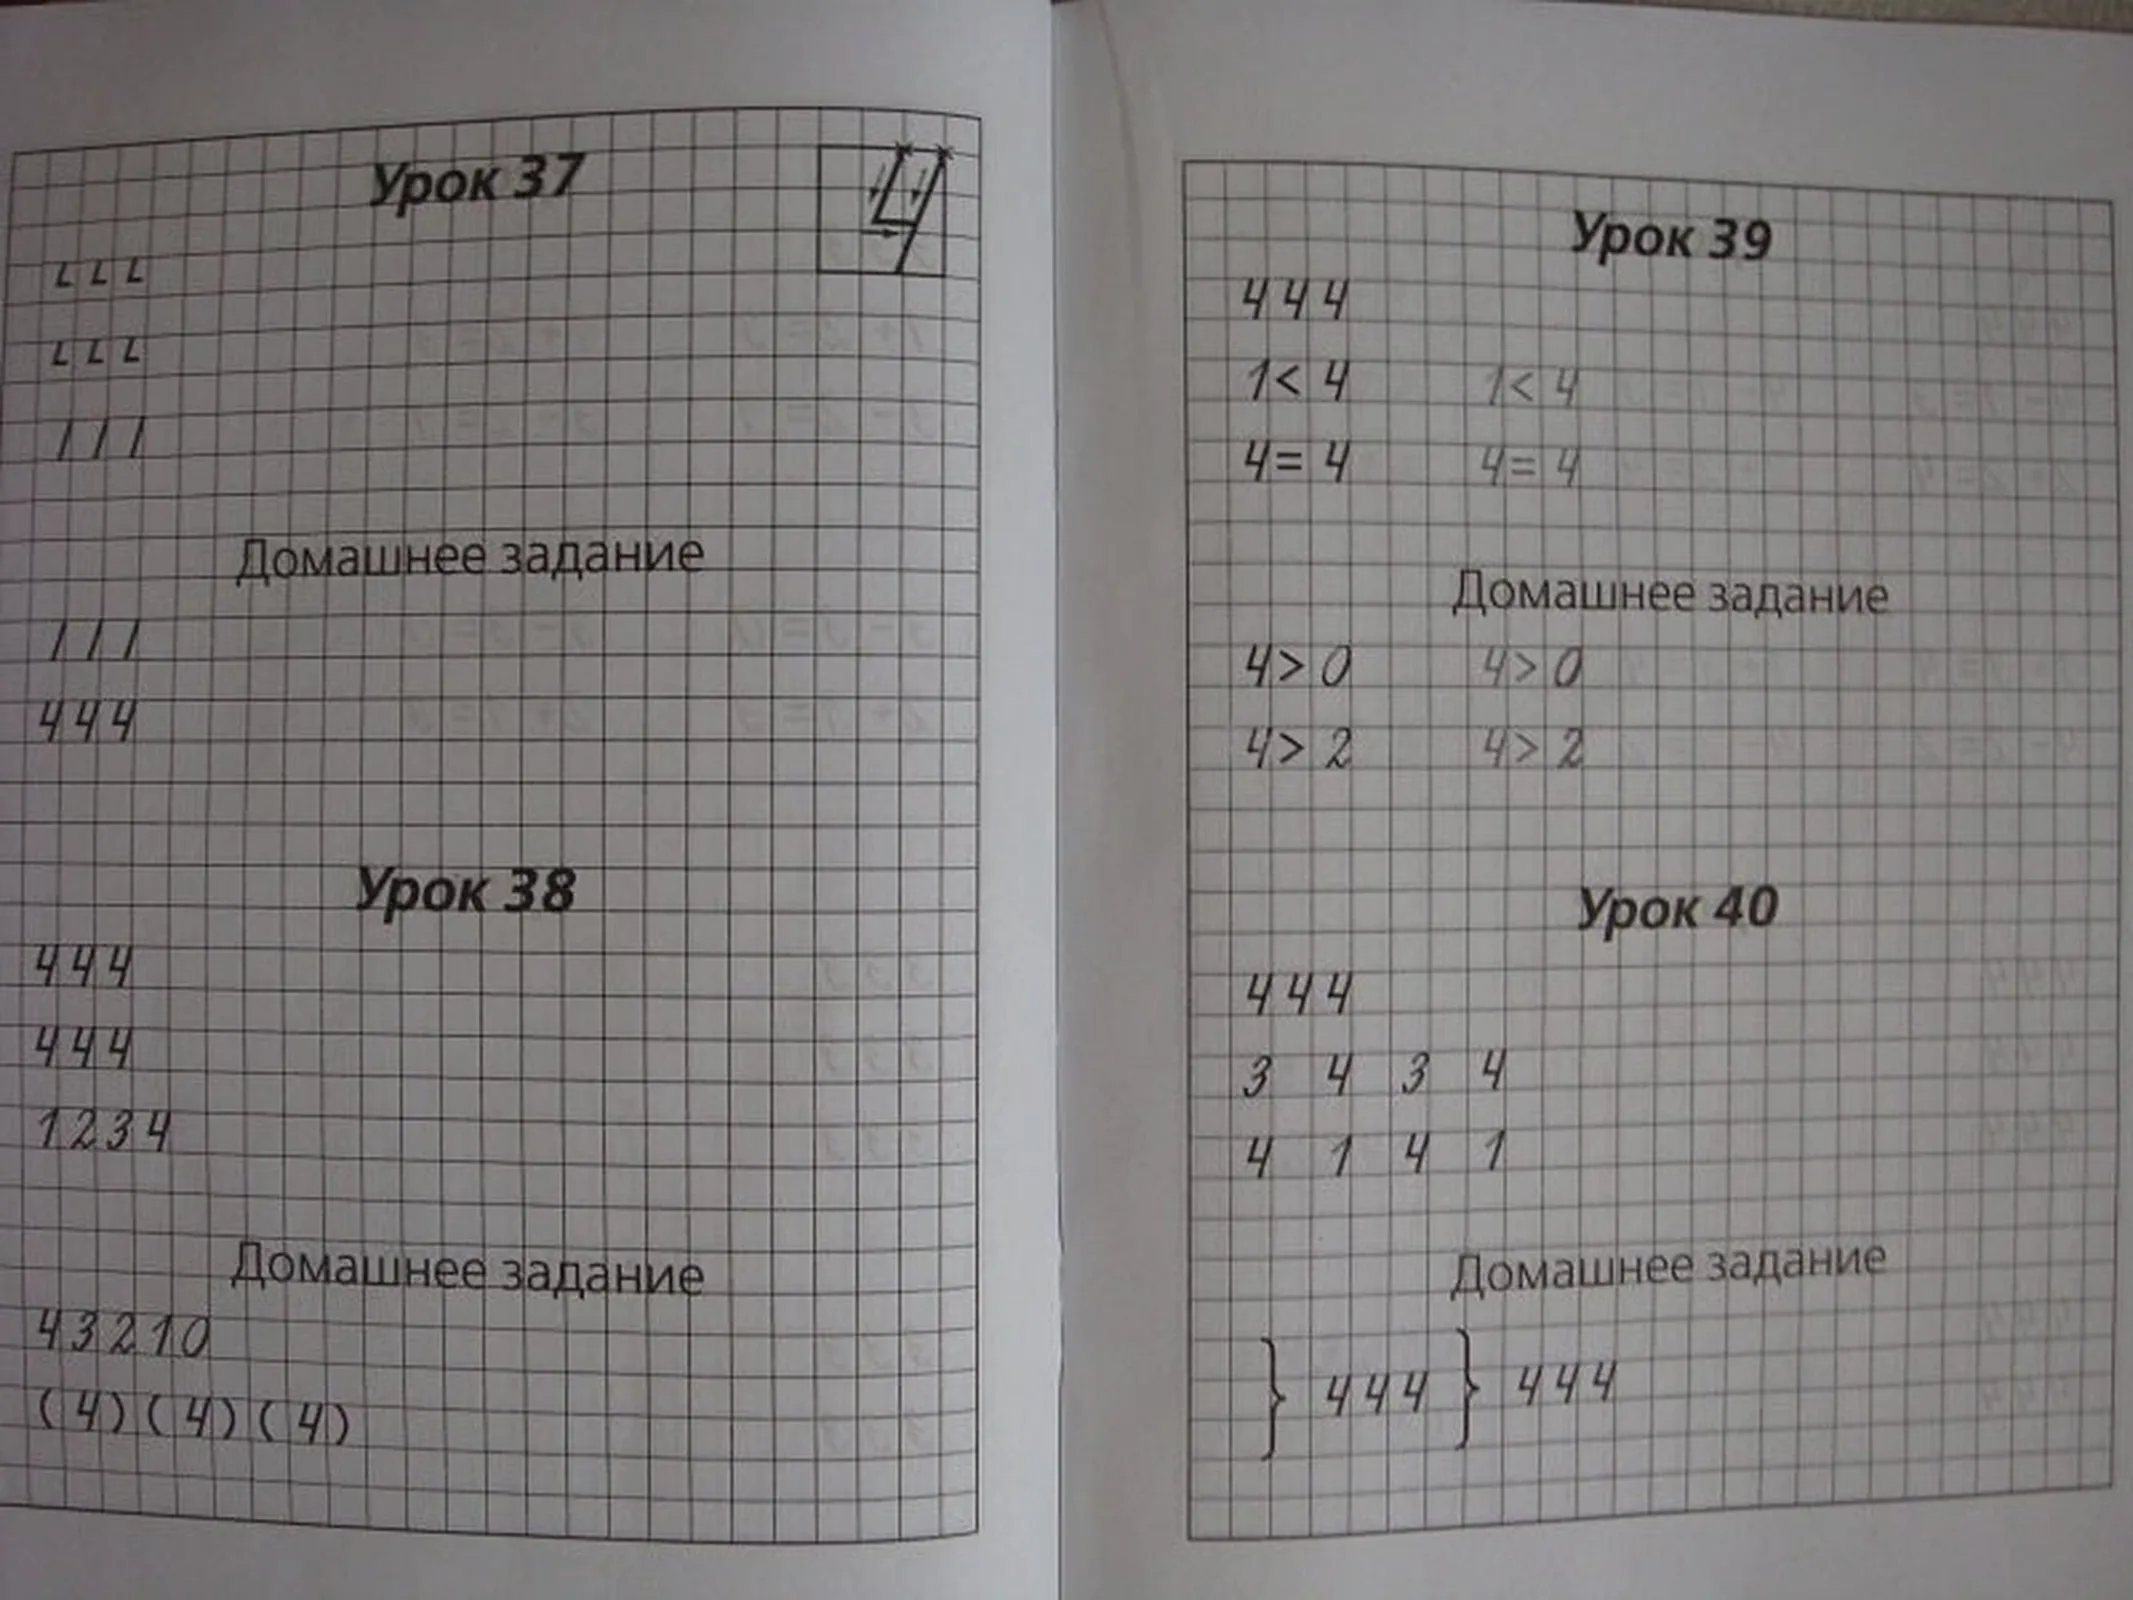 Урок 37
4
Домашнее задание
4 4 4
Урок 38
4 4 4
4 4 4
1 2 3 4
Домашнее задание
4 3 2 1 0
( 4 ) ( 4 ) ( 4 )
Урок 39
4 4 4
1 < 4 1 < 4
4 = 4 4 = 4
Домашнее задание
4 > 0 4 > 0
4 > 2 4 > 2
Урок 40
4 4 4
3 4 3 4
4 1 4 1
Домашнее задание
} 4 4 4 } 4 4 4